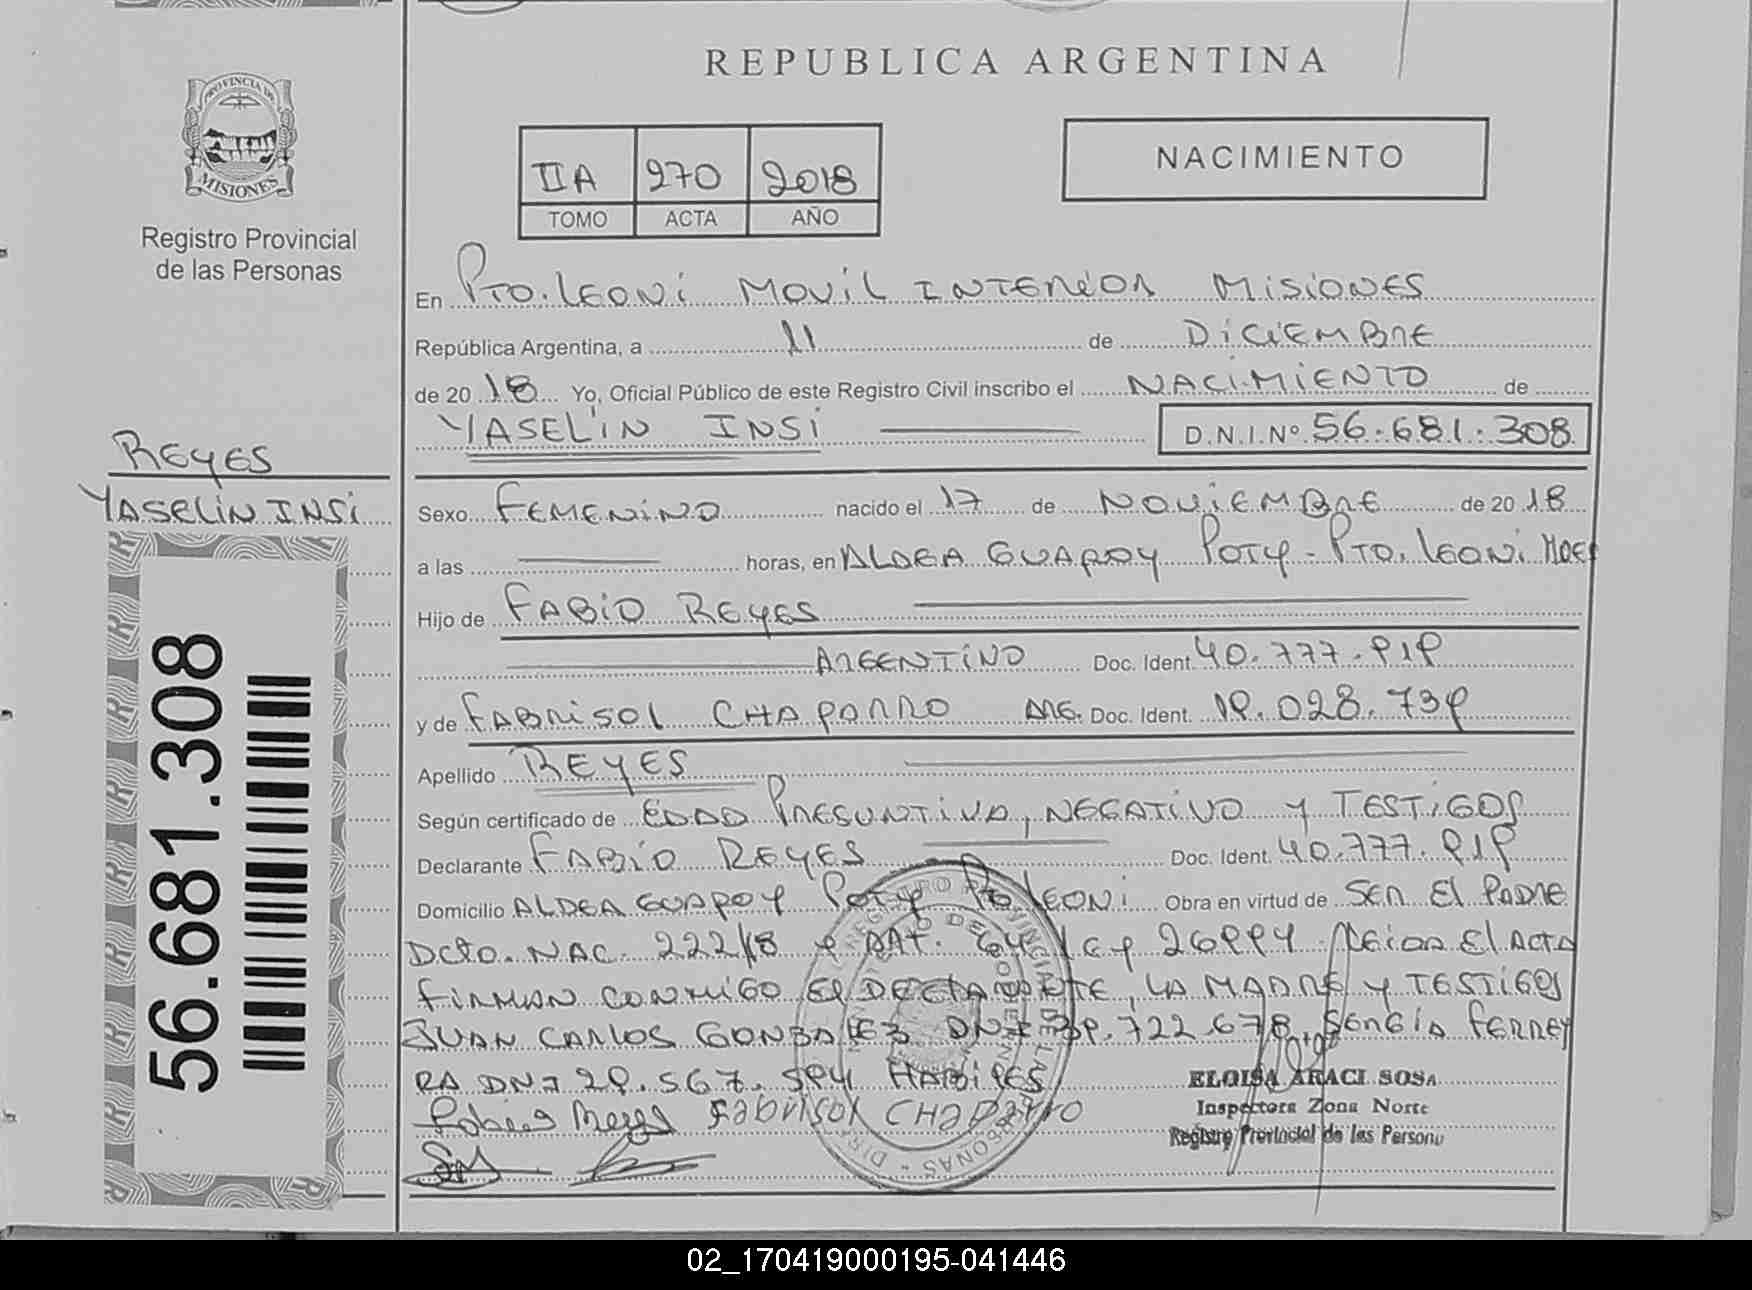 REPUBLICA ARGENTINA
PROVINCIA DE
MISIONES
Registro Provincial
de las Personas
IIA 270 2018
TOMO ACTA AÑO
NACIMIENTO
En Pto. Leoni Movil Interior Misiones
República Argentina, a 11 de Diciembre
de 2018 Yo, Oficial Público de este Registro Civil inscribo el Nacimiento de
Yaselin Insi D.N.I.Nº 56.681.308
Reyes
Yaselin Insi
Sexo Femenino nacido el 17 de Noviembre de 2018
a las horas, en Aldea Guapoy Poty - Pto. Leoni
Hijo de Fabio Reyes
Argentino Doc. Ident. 40.777.919
y de Fabrisol Chaparro Arg. Doc. Ident. 19.028.739
Apellido Reyes
Según certificado de Edad Presuntiva, Negativo y Testigos
Declarante Fabio Reyes Doc. Ident. 40.777.919
Domicilio Aldea Guapoy Poty Pto Leoni Obra en virtud de Ser El Padre
Dcto. Nac. 222/18 y Art. Ley 26994 Leida El Acta
Firman Conmigo El Declarante, La Madre y Testigos
Juan Carlos Gonzalez DNI 39.722.678, Sergia Ferrey
ra DNI 29.567.594 Habiles
Fabio Reyes Fabrisol CHaparro
ELOISA ARACI SOSA
Inspectora Zona Norte
Registro Provincial de las Persona
56.681.308
02_170419000195-041446